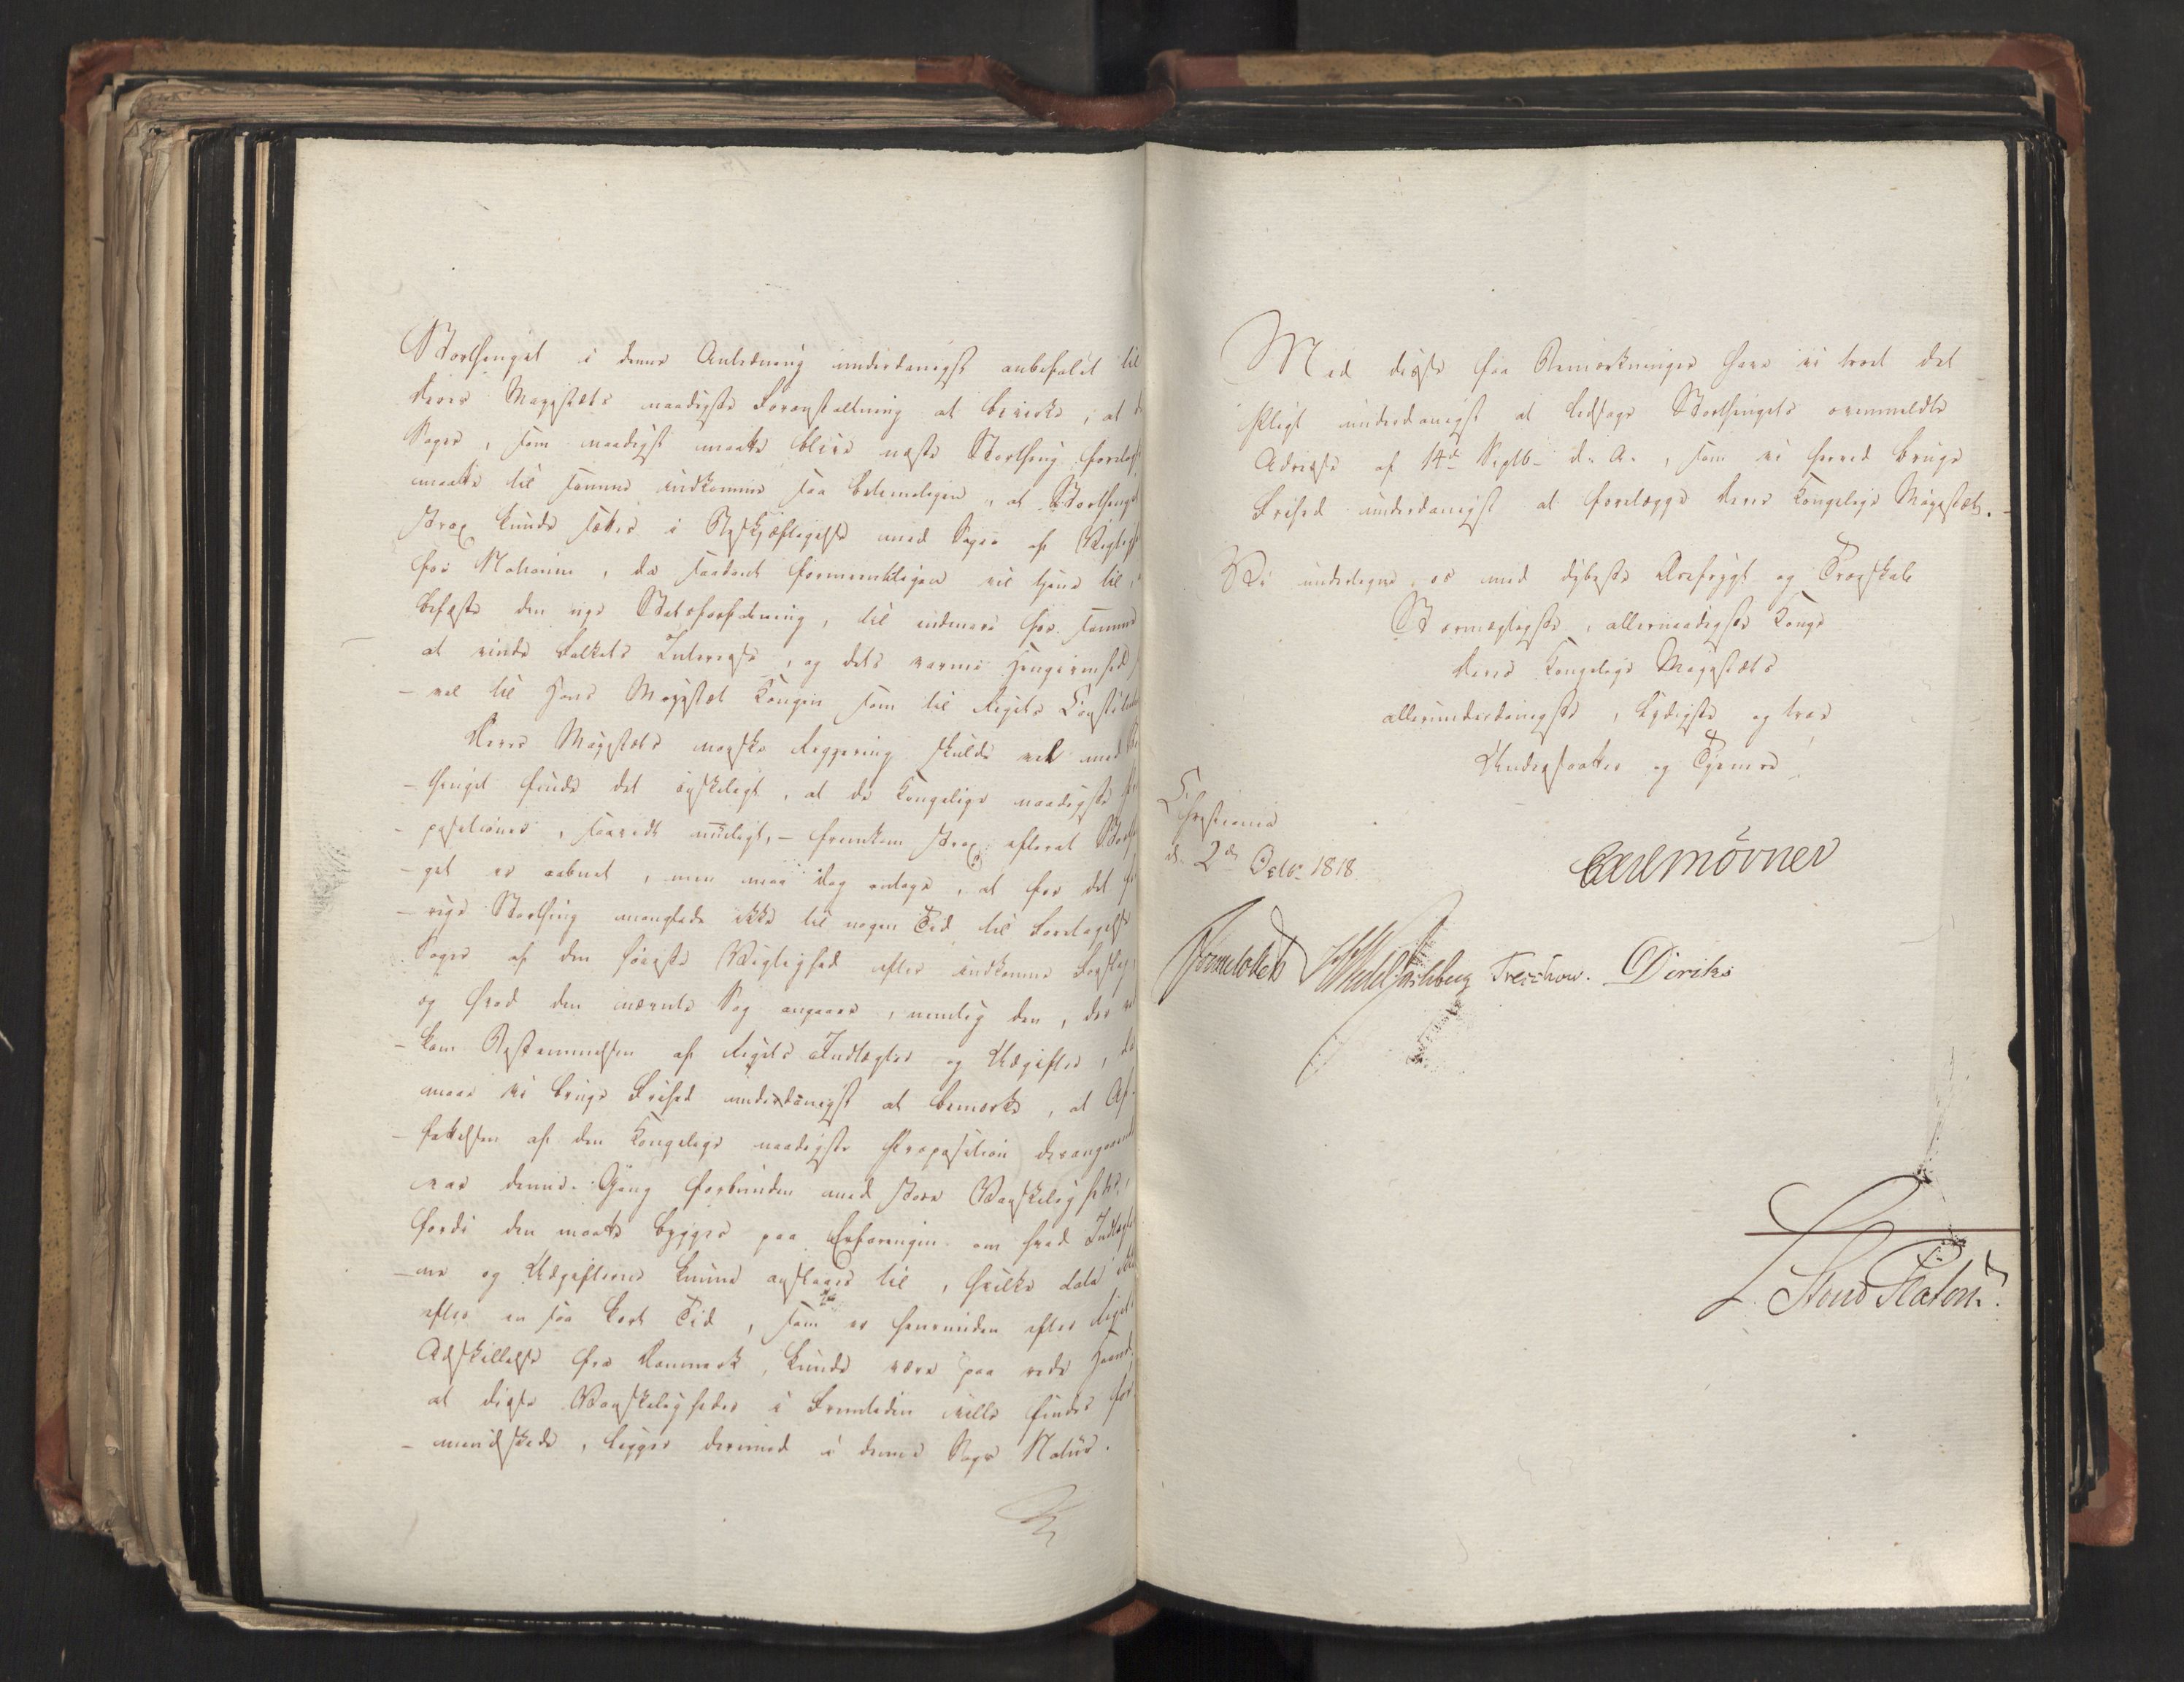 Storthinget i denne Anledning underdanigst anbefalet til
Deres Majestæts naadigste Foranstaltning at bevirke, at de
Sager, som naadigst maatte blive næste Storthing forelagt
maatte til samme indkomme saa betimeligen, at Storthinget
strax kunde sættes i Beskjæftigelse med Sager af Vigtighed
for Nationen, da saadant formeentligen vil tjene til,
befæste den nye Statsforfatning, til endmere for samme
at vinde Folkets Interesse, og dets varme Hengivenhed
- vel til Hans Majestæt Kongen som til Rigets Constitution
Deres Majestæts norske Regjering skulde vel med
- thinget finde det ønskeligt, at de Kongelige naadigste
- positioner, saavidt mueligt, fremkom strax efterat Storthin
- get er aabnet, men maa dog antage, at for det
- rige Storthing manglede ikke til nogen Tid til Foretagelse
Sager af den høieste Vigtighed efter indkomne Forslag,
og hvad den nævnte Sag angaaer, nemlig den, der
- kom Bestemmelsen af Rigets Indtægter og Udgifter,
maae vi bruge Frihed underdanigst at bemærke, at Af-
- fattelsen af den Kongelige naadigste Proposition derangaaende
var denne Gang forbunden med store Vanskeligheder,
fordi den maatte bygges paa Erfaringen om hvad Indtægter
- ne og Udgifterne kunne anslaaes til, hvilke data ikke
efter en saa kort Tid, som er henrunden efter Rigets
Adskillelse fra Danmark, kunde være paa rede Haand.
at disse Vanskeligheder i Fremtiden ville findes for-
- mindskede, ligger derimod i denne Sags Natur.
Med disse faa Bemærkninger have vi troet det
Pligt underdanigst at ledsage Storthingets ovenmeldte
Adresse af 14de Septb. d. A., som vi herved bruge
Frihed underdanigst at forelægge Deres Kongelige Majestæt.
Vi undertegne os med dybeste Ærefrygt og Troeskab
Stormægtigste, allernaadigste Konge
Deres Kongelige Majestæts
allerunderdanigste, lydigste og troe
Undersaatter og Tjenere
Christiania
d. 2de Octbr 1818.
Carl Mörner
Sommelckk HWedel Jarlsberg Treschow. Diriks
L. Stoud Platou.